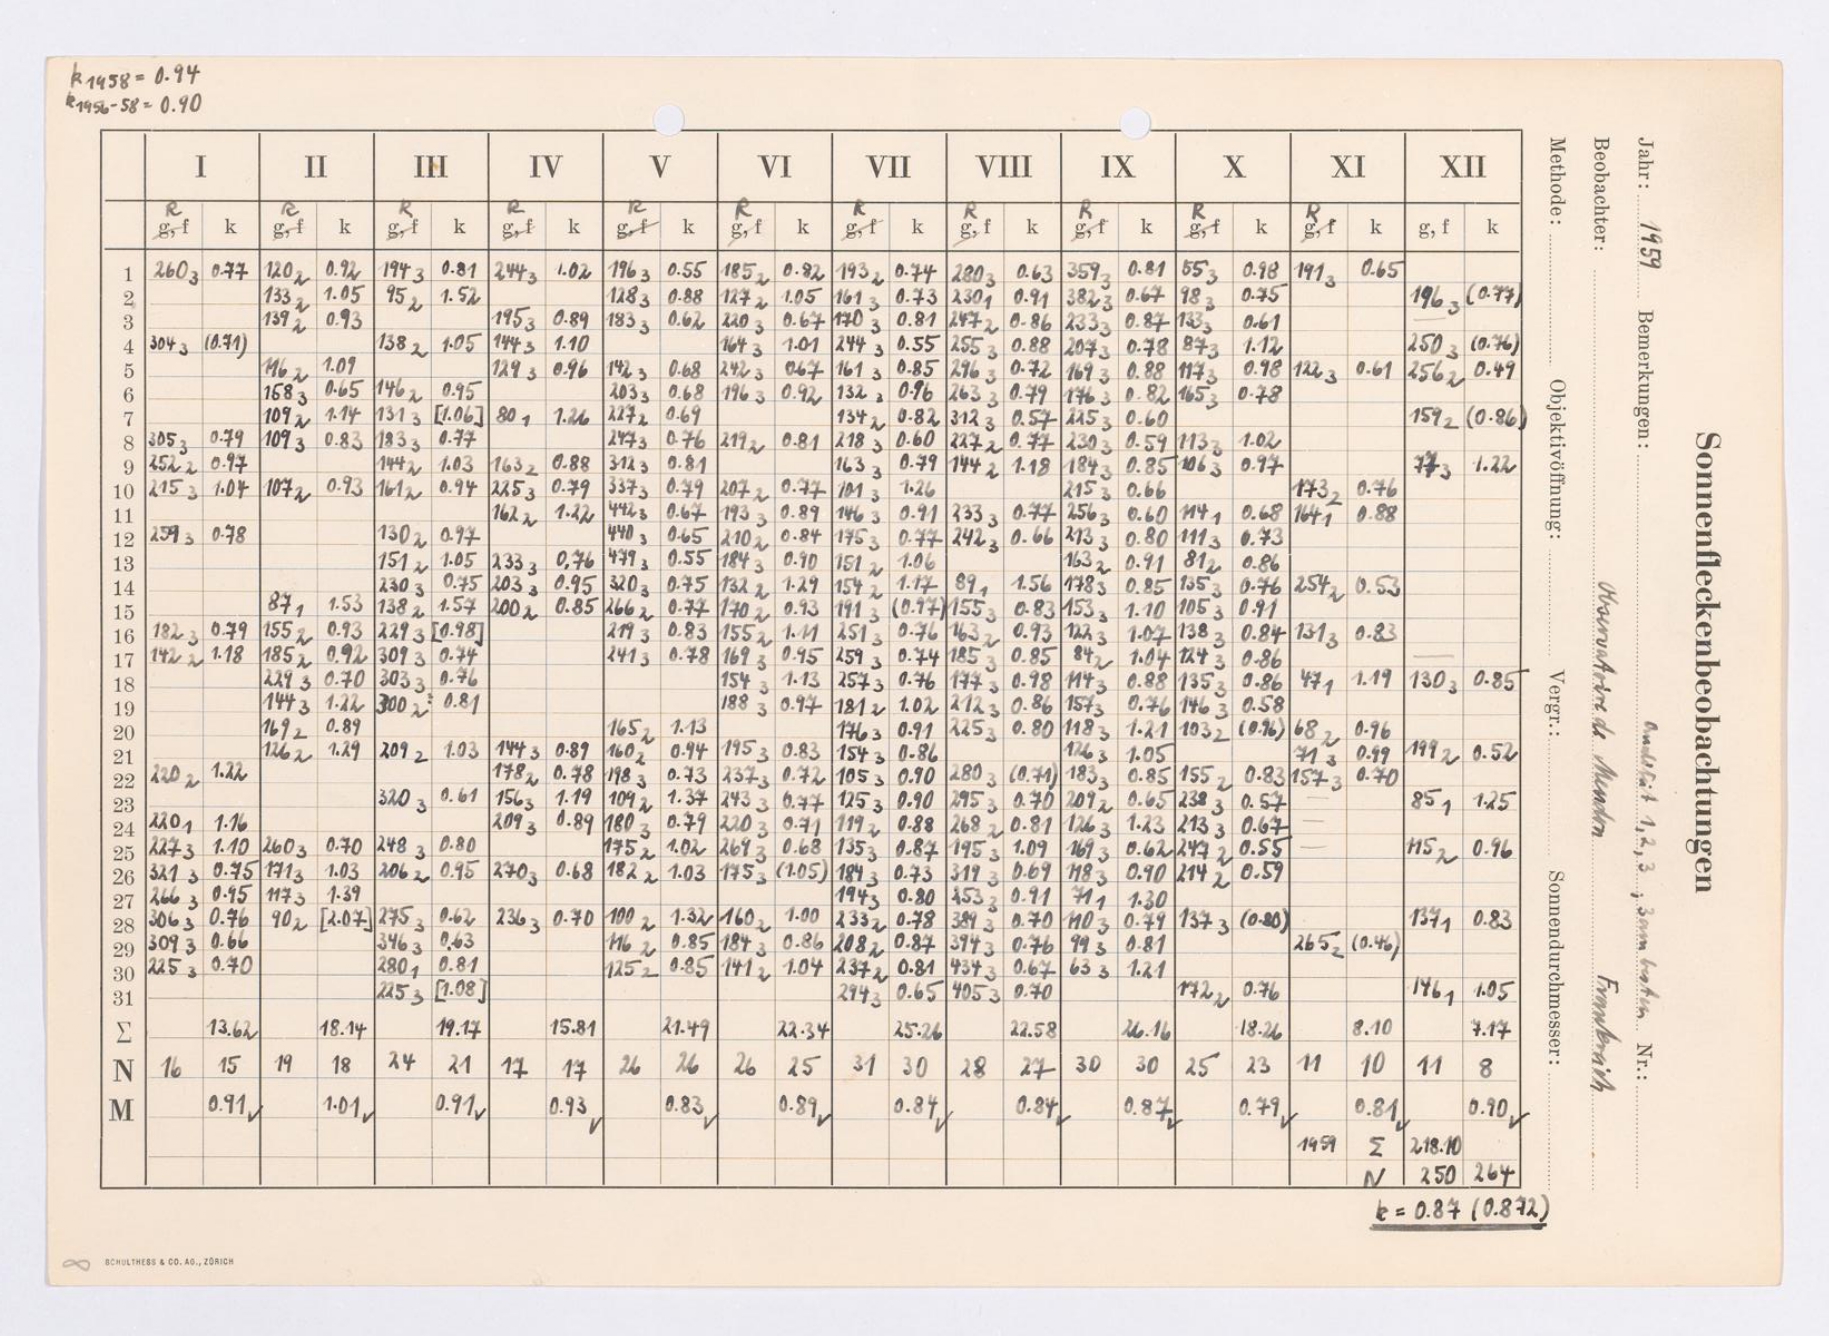 k 1958 = 0.94
k 1956-58 = 0.90
I II III IV V VI VII VIII IX X XI XII
R R R R R R R R R R R
g, f k g, f k g, f k g, f k g, f k g, f k g, f k g, f k g, f k g, f k g, f k g, f k
1 260 3 0.77 120 2 0.92 194 3 0.81 244 3 1.02 196 3 0.55 185 2 0.82 193 2 0.74 280 3 0.63 359 3 0.81 55 3 0.98 191 3 0.65
2 133 2 1.05 95 2 1.52 128 3 0.88 127 2 1.05 161 3 0.73 230 1 0.91 382 3 0.67 98 3 0.75 196 3 (0.77)
3 139 2 0.93 195 3 0.89 183 3 0.62 220 3 0.67 170 3 0.81 247 2 0.86 233 3 0.87 133 3 0.61
4 304 3 (0.71) 138 2 1.05 144 3 1.10 164 3 1.01 244 3 0.55 255 3 0.88 207 3 0.78 87 3 1.12 250 3 (0.76)
5 116 2 1.09 129 3 0.96 142 3 0.68 242 3 0.67 161 3 0.85 296 3 0.72 169 3 0.88 117 3 0.98 122 3 0.61 256 2 0.49
6 168 3 0.65 146 2 0.95 203 3 0.68 196 3 0.92 132 3 0.96 263 3 0.79 176 3 0.82 165 3 0.78
7 109 2 1.14 131 3 [1.06] 80 1 1.26 227 2 0.69 134 2 0.82 312 3 0.57 225 3 0.60 159 2 (0.86)
8 305 3 0.79 109 3 0.83 183 3 0.77 247 3 0.76 219 2 0.81 218 3 0.60 227 2 0.77 230 3 0.59 113 3 1.02
9 252 2 0.97 144 2 1.03 163 2 0.88 312 3 0.81 163 3 0.79 144 2 1.18 184 3 0.85 106 3 0.97 77 3 1.22
10 215 3 1.04 107 2 0.93 161 2 0.94 225 3 0.79 337 3 0.79 207 2 0.77 101 3 1.26 215 3 0.66 173 2 0.76
11 162 2 1.22 442 3 0.67 193 3 0.89 146 3 0.91 233 3 0.77 256 3 0.60 114 1 0.68 164 1 0.88
12 259 3 0.78 130 2 0.97 440 3 0.65 210 2 0.84 175 3 0.77 242 3 0.66 213 3 0.80 111 3 0.73
13 151 2 1.05 233 3 0,76 479 3 0.55 184 3 0.90 151 2 1.06 163 2 0.91 81 2 0.86
14 230 3 0.75 203 3 0.95 320 3 0.75 132 2 1.29 154 2 1.17 89 1 1.56 178 3 0.85 135 3 0.76 254 2 0.53
15 87 1 1.53 138 2 1.57 200 2 0.85 266 2 0.77 170 2 0.93 191 3 (0.97) 155 3 0.83 153 3 1.10 105 3 0.91
16 182 3 0.79 155 2 0.93 229 3 [0.98] 219 3 0.83 155 2 1.11 251 3 0.76 163 2 0.93 122 3 1.07 138 3 0.84 131 3 0.83
17 142 2 1.18 185 2 0.92 309 3 0.74 241 3 0.78 169 3 0.95 259 3 0.74 185 3 0.85 84 2 1.04 124 3 0.86 —
18 229 3 0.70 303 3 0.76 154 3 1.13 257 3 0.76 177 3 0.98 114 3 0.88 135 3 0.86 47 1 1.19 130 3 0.85
19 144 3 1.22 300 2 0.81 188 3 0.97 181 2 1.02 212 3 0.86 157 3 0.76 146 3 0.58
20 169 2 0.89 165 2 1.13 176 3 0.91 225 3 0.80 118 3 1.21 103 2 (0.96) 68 2 0.96
21 126 2 1.29 209 2 1.03 144 3 0.89 160 2 0.94 195 3 0.83 154 3 0.86 126 3 1.05 71 3 0.99 199 2 0.52
22 220 2 1.22 178 2 0.78 198 3 0.73 237 3 0.72 105 3 0.90 280 3 (0.71) 183 3 0.85 155 2 0.83 157 3 0.70
23 320 3 0.61 156 3 1.19 109 2 1.37 243 3 0.77 125 3 0.90 295 3 0.70 209 2 0.65 238 3 0.57 — 85 1 1.25
24 220 1 1.16 209 3 0.89 180 3 0.79 220 3 0.71 119 2 0.88 268 2 0.81 126 3 1.23 213 3 0.67
25 227 3 1.10 260 3 0.70 248 3 0.80 175 2 1.02 269 3 0.68 135 3 0.87 195 3 1.09 169 3 0.62 247 2 0.55 — 115 2 0.96
26 321 3 0.75 171 3 1.03 206 2 0.95 270 3 0.68 182 2 1.03 175 3 (1.05) 184 3 0.73 319 3 0.69 118 3 0.90 214 2 0.59
27 266 3 0.95 117 3 1.39 194 3 0.80 253 3 0.91 71 1 1.30
28 306 3 0.76 90 2 [2.07] 275 3 0.62 236 3 0.70 100 2 1.32 160 2 1.00 233 2 0.78 389 3 0.70 110 3 0.79 137 3 (0.80) 137 1 0.83
29 309 3 0.66 346 3 0,63 116 2 0.85 184 3 0.86 208 2 0.87 394 3 0.76 99 3 0.81 265 2 (0.46)
30 225 3 0.70 280 1 0.81 125 2 0.85 141 2 1.04 237 2 0.81 434 3 0.67 63 3 1.21
31 225 3 [1.08] 294 3 0.65 405 3 0.70 172 2 0.76 146 1 1.05
Σ 13.62 18.14 19.17 15.81 21.49 22.34 25.26 22.58 26.16 18.26 8.10 7.17
N 16 15 19 18 24 21 17 17 26 26 26 25 31 30 28 27 30 30 25 23 11 10 11 8
M 0.91 1.01 0.91 0.93 0.83 0.89 0.84 0.84 0.87 0.79 0.81 0.90
1959 Σ 218.10
N 250 264
k = 0.87 (0.872)
SCHULTHESS & CO. AG., ZÜRICH
Sonnenfleckenbeobachtungen
Jahr: 1959 Bemerkungen: Qualität 1, 2, 3 ; 3 am besten Nr.:
Beobachter: Observatoire de Meudon Frankreich
Methode: Objektivöffnung: Vergr.: Sonnendurchmesser: